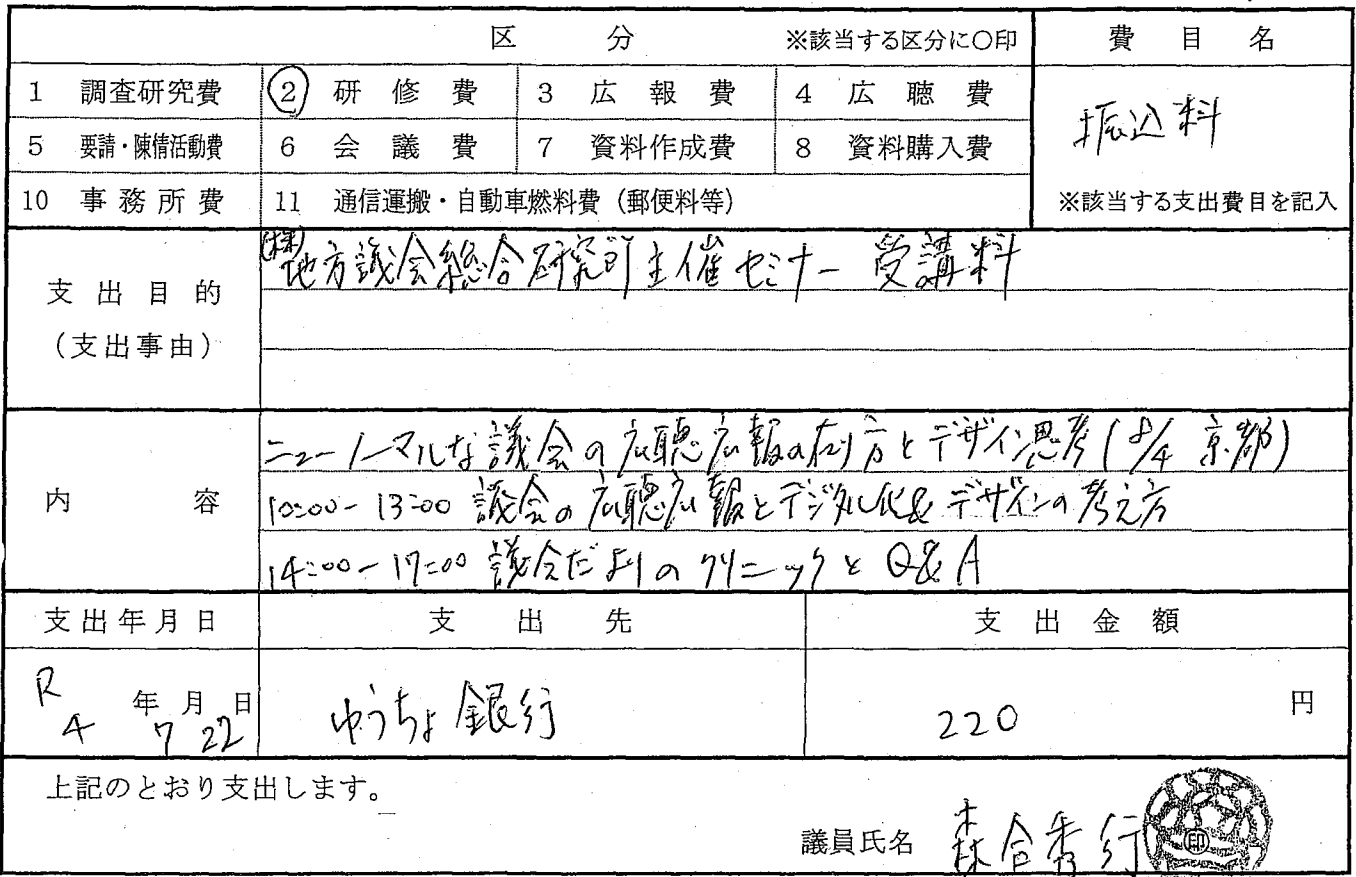 区 分 ※該当する区分に〇印 費目名
1 調査研究費 ② 研修費 3 広報費 4 広聴費 振込料
5 要請・陳情活動費 6 会議費 7 資料作成費 8 資料購入費
10 事務所費 11 通信運搬・自動車燃料費（郵便料等） ※該当する支出費目を記入
支出目的
（支出事由）
(株)地方議会総合研究所主催セミナー 受講料
内容
ニューノーマルな議会の広聴広報の在り方とデザイン思考(8/4 京都)
10:00-13:00 議会の広聴広報とデジタル化&デザインの考え方
14:00-17:00 議会だよりのクリニックとQ&A
支出年月日 支出先 支出金額
R4年7月22日 ゆうちょ銀行 220円
上記のとおり支出します。
議員氏名 森合秀行 印